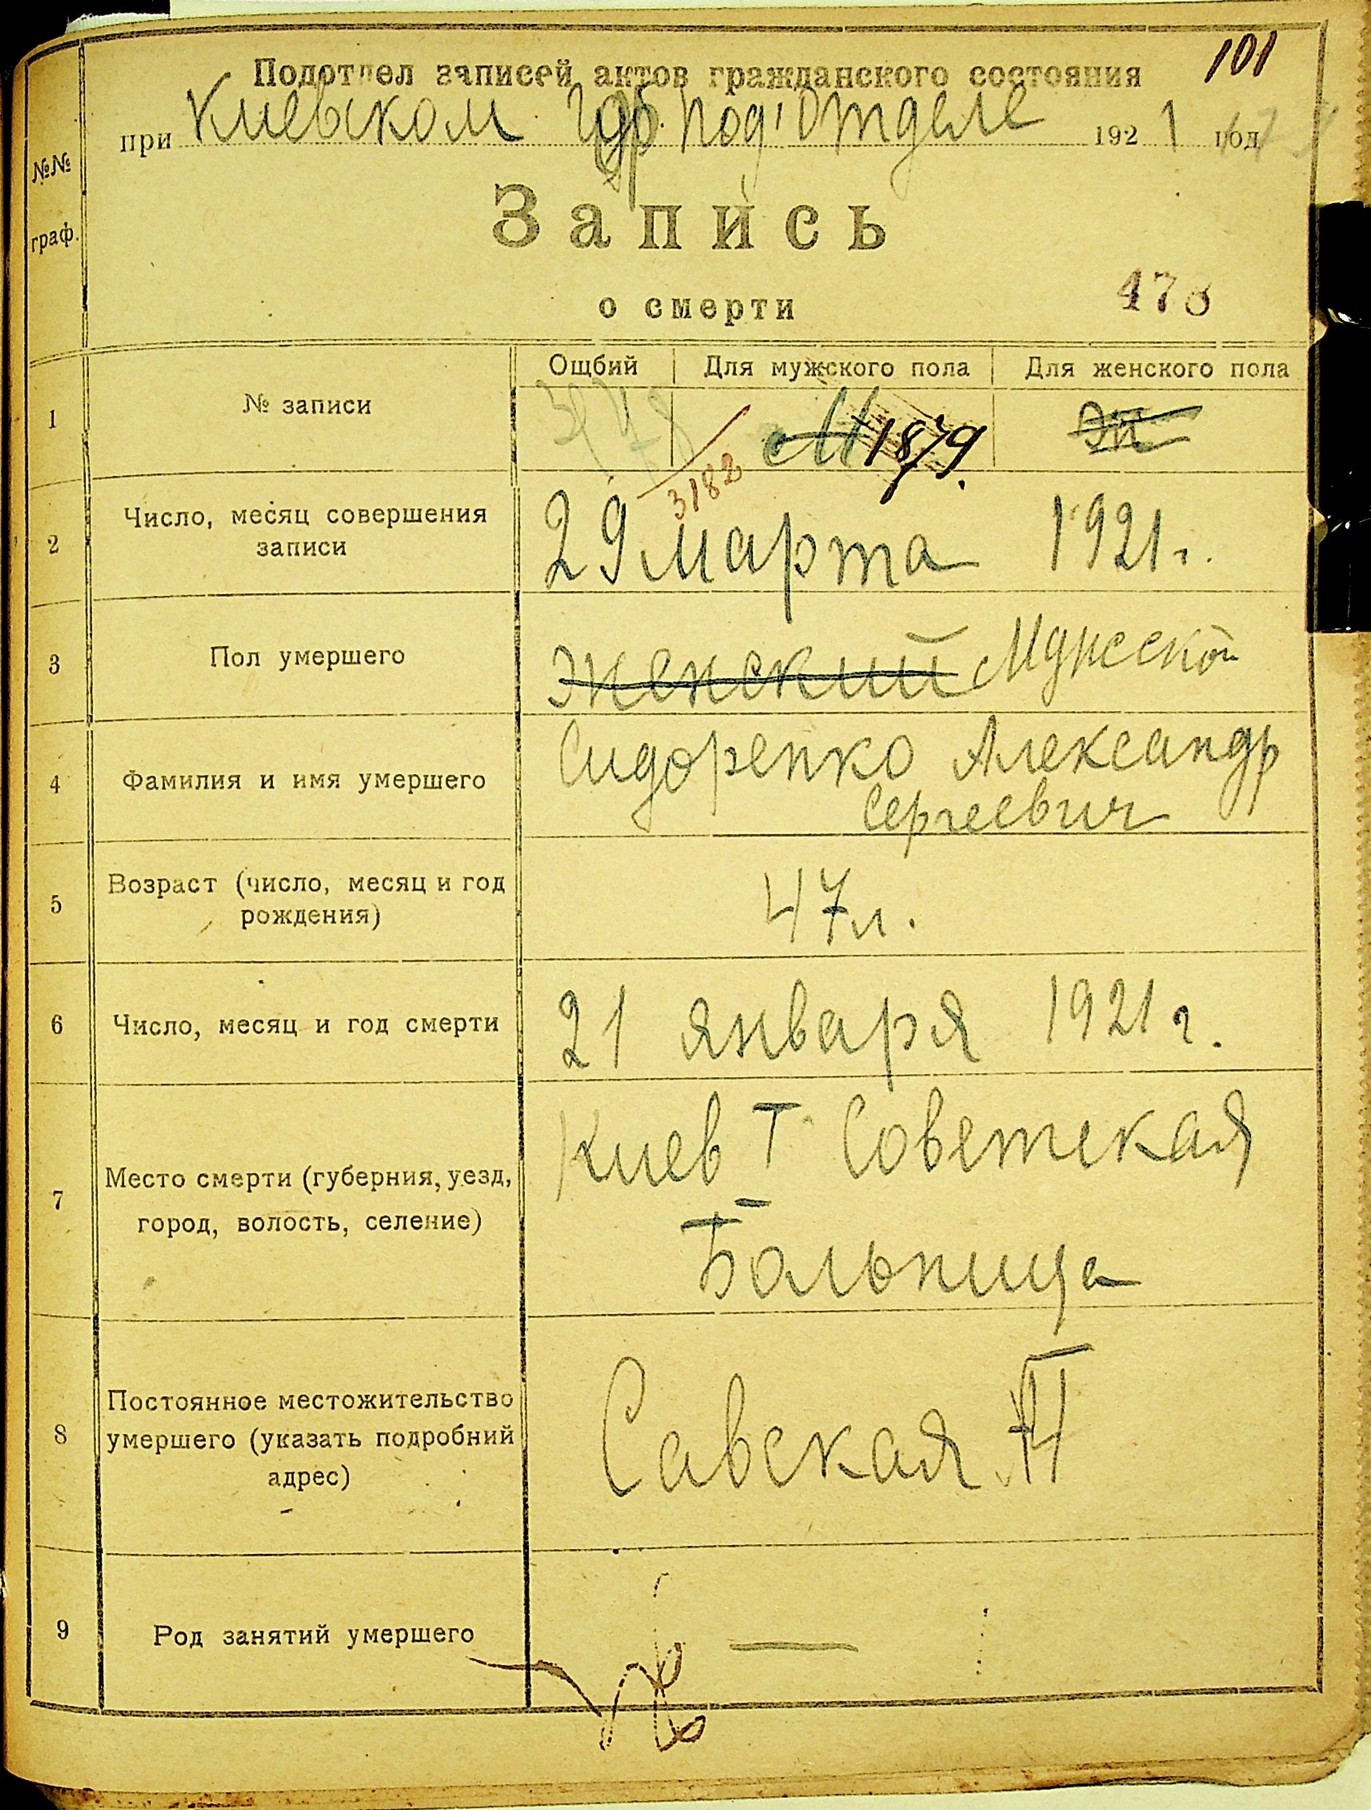 101
Подотдел записей актов гражданского состояния
при Киевском Губ. Под'Отделе 1921 год
№№ граф.
Запись
о смерти
478
Ощбий Для мужского пола Для женского пола
1 № записи 3178 М 1879. Эй
3182
2 Число, месяц совершения записи 29 марта 1921 г.
3 Пол умершего женский Мужской
4 Фамилия и имя умершего Сидоренко Александр
Сергеевич
5 Возраст (число, месяц и год рождения) 47 л.
6 Число, месяц и год смерти 21 января 1921 г.
7 Место смерти (губерния, уезд, город, волость, селение) Киев I Советская
Больница
8 Постоянное местожительство умершего (указать подробний адрес) Савская
9 Род занятий умершего —